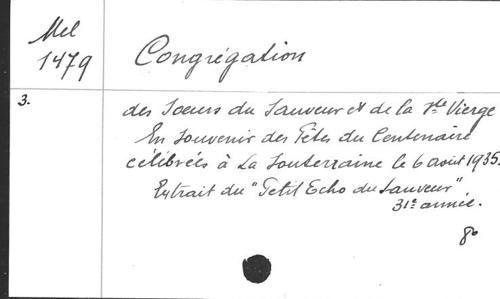 Mel
1479
Congrégation
3.
des Soeurs du Sauveur et de la Ste Vierge
En souvenir des Fêtes du Centenaire
célébrées à La Souterraine le 6 août 1935.
Extrait du "Petit Echo du Sauveur"
31e année.
8o